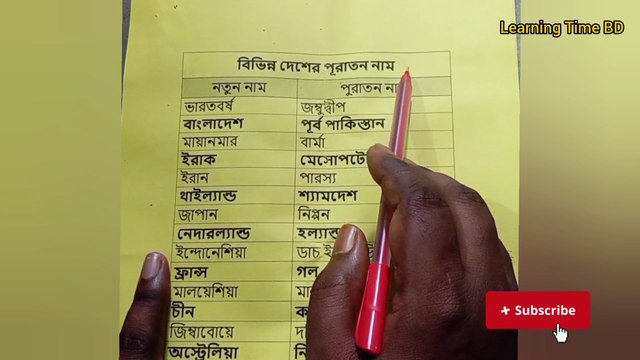 Learning Time BD
বিভিন্ন দেশের পূরাতন নাম
নতুন নাম পুরাতন
ভারতবর্ষ জম্বুদ্বীপ
বাংলাদেশ পূর্ব পাকিস্তান
মায়ানমার বার্মা
ইরাক
ইরান পারস্য
থাইল্যান্ড শ্যামদেশ
জাপান নিপ্পন
নেদারল্যান্ড
ইন্দোনেশিয়া ডাচ
ফ্রান্স গল
মালয়েশিয়া
চীন
জিম্বাবোয়ে
অস্ট্রেলিয়া
+ Subscribe